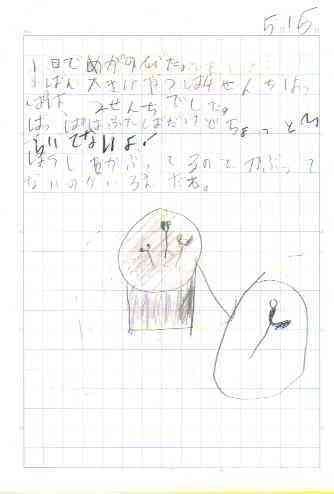 5 15
1日でめがのびた。
1ばん大きいやつは4せんちよっ
は 2せんちでした。
はっぱはふたばだけどちょっと
らいてないよ!
ぼうしをかぶってるのとかぶって
ないのがいるんだね。